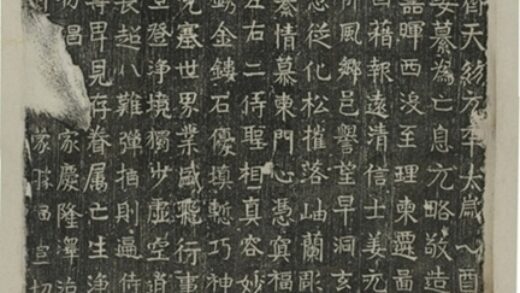 天統元年太歲乙酉
姜纂為亡息元略敬造
暉西沒至理東遷啚
因藉報遠清信士姜元
所風鄉邑譽望早洞玄
忽從化松摧落岫蘭彫
纂情慕東門心憑冥福
左右二侍聖相真容妙
金鏤石優填慙巧神
光塞世界業盛飛行事
登淨境獨步虛空逍
長超八難彈指則遍侍
母見存眷属亡生淨
昌家慶隆澤治
切